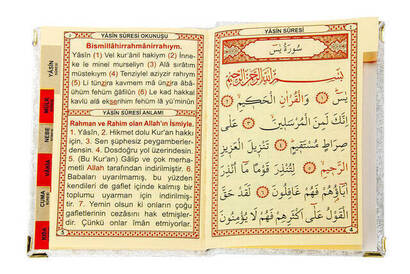 YÂSÎN SÛRESİ OKUNUŞU
Bismillâhirrahmânirrahıym.
Yâsîn (1) Vel kur'ânil hakiym (2) İnne-
ke le minel murseliyn (3) Alâ sırâtım
müstekıym (4) Tenziylel aziyzir rahıym
(5) Li tünzira kavmem mâ ünzira âbâ-
ühüm fehüm ğâfilûn (6) Le kad hakkal
kavlü alâ ekserihim fehüm lâ yü'minûn
YÂSÎN SÛRESİ ANLAMI
Rahman ve Rahim olan Allah'ın İsmiyle.
1. Yâsîn, 2. Hikmet dolu Kur'an hakkı
için, 3. Sen şüphesiz peygamberler-
densin. 4. Dosdoğru yol üzerindesin.
5. (Bu Kur'an) Gâlip ve çok merha-
metli Allah tarafından indirilmiştir. 6.
Babaları uyarılmamış, bu yüzden
kendileri de gaflet içinde kalmış bir
toplumu uyarman için indirilmiş-
tir. 7. Yemin olsun ki onların çoğu
gafletlerinin cezasını hak etmişler-
dir. Çünkü onlar iman etmiyorlar.
5
YÂSÎN
MÜLK
NEBE
VÂKIA
CUMA
YÂSÎN SÛRESİ
سُورَةُ يٰسٓ
بِسْمِ اللّٰهِ الرَّحْمٰنِ الرَّحِيمِ
يٰسٓ ﴿١﴾ وَالْقُرْاٰنِ الْحَكِيمِ ﴿٢﴾
اِنَّكَ لَمِنَ الْمُرْسَلِينَ ﴿٣﴾ عَلٰى
صِرَاطٍ مُسْتَقِيمٍ ﴿٤﴾ تَنْزِيلَ الْعَزِيزِ
الرَّحِيمِ ﴿٥﴾ لِتُنْذِرَ قَوْمًا مَٓا اُنْذِرَ
اٰبَٓاؤُ۬هُمْ فَهُمْ غَافِلُونَ ﴿٦﴾ لَقَدْ حَقَّ
الْقَوْلُ عَلٰٓى اَكْثَرِهِمْ فَهُمْ لَا يُؤْمِنُونَ
4